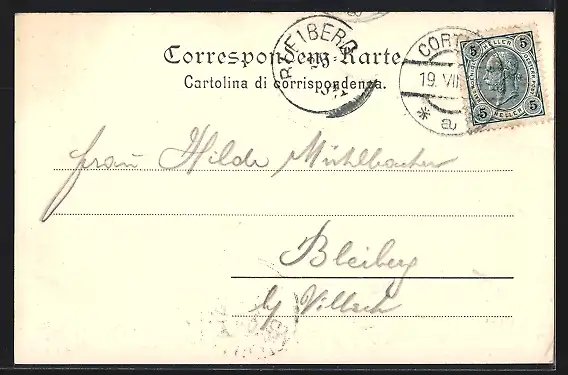 Correspondenz-Karte.
Cartolina di corrispondenza.
BLEIBERG
CORT
19. VII
* a
5 HELLER 5
5 HELLER 5
Frau Hilde Mühlbacher
Bleiberg
b/ Villach